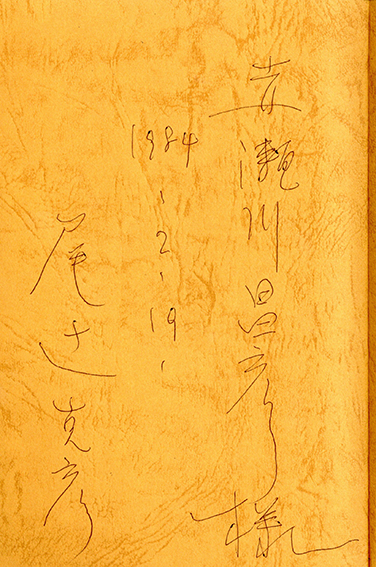 赤瀬川昌彦様
1984.2.19.
尾辻克彦